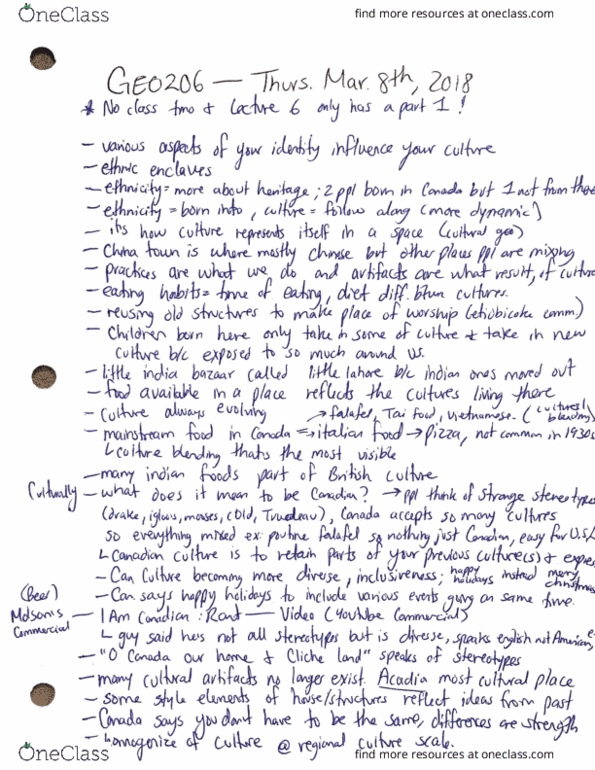 OneClass
find more resources at oneclass.com
GEO206 — Thurs. Mar. 8th, 2018
* No class tmo & Lecture 6 only has a part 1!
– various aspects of your identity influence your culture
– ethnic enclaves
– ethnicity = more about heritage; 2 ppl born in Canada but 1 not from there
– ethnicity = born into, culture = follow along (more dynamic)
– its how culture represents itself in a space (cultural geo)
– China town is where mostly chinese but other places ppl are mixing
– practices are what we do and artifacts are what result, of culture
– eating habits = time of eating, diet diff. btwn cultures.
– reusing old structures to make place of worship (etiobicoke comm)
– Children born here only take in some of culture & take in new
culture b/c exposed to so much around us.
– little india bazaar called little lahore b/c indian ones moved out
– food available in a place reflects the cultures living there
– Culture always evolving → falafel, Tai food, vietnamese. (cultures blending)
– mainstream food in Canada ⇒ italian food → pizza, not common in 1930s
↳ culture blending thats the most visible
– many indian foods part of British culture
Culturally – what does it mean to be Canadian? → ppl think of strange stereotypes
(drake, igloos, mooses, cold, Trudeau), Canada accepts so many cultures
so everything mixed ex: poutine falafel so nothing just Canadian, easy for U.S.
↳ Canadian culture is to retain parts of your previous culture(s) & expres
– Can Culture becoming more divuse, inclusiveness; happy holidays instead merry christmas
– Can says happy holidays to include various events going on same time.
(Beer) Molson's Commercial – I Am Canadian : Rant — Video (YouTube Commercial)
↳ guy said hes not all stereotypes but is diverse, speaks english not American,
– "O Canada our home & Cliche land" speaks of stereotypes
– many cultural artifacts no longer exist. Acadia most cultural place
– some style elements of house/structures reflect ideas from past
– Canada says you dont have to be the same, differences are strength
– homogonize of culture @ regional culture scale.
OneClass
find more resources at oneclass.com